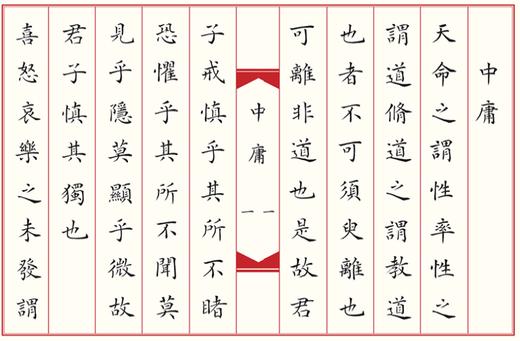 中庸
天命之謂性率性之
謂道脩道之謂教道
也者不可須臾離也
可離非道也是故君
中庸 一 一
子戒慎乎其所不睹
恐懼乎其所不聞莫
見乎隱莫顯乎微故
君子慎其獨也
喜怒哀樂之未發謂